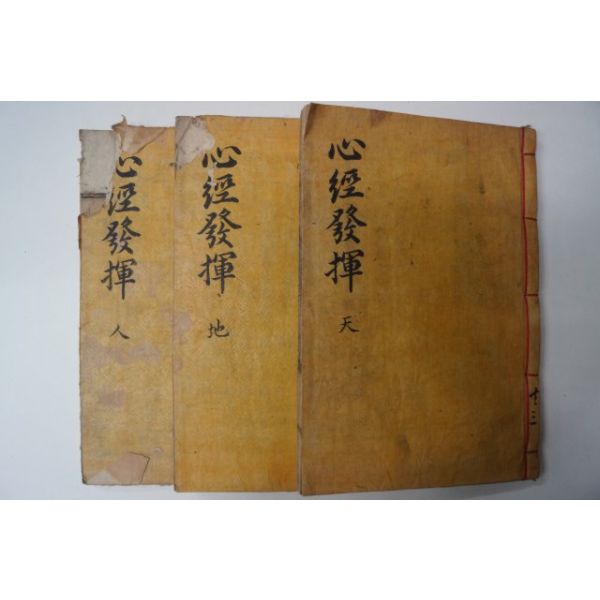 心經發揮
天
共三
心經發揮
地
心經發揮
人